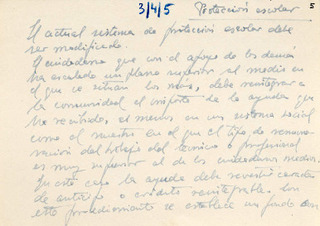 3/4/5 Protección escolar 5
El actual sistema de protección escolar debe
ser modificado.
El ciudadano que con el apoyo de los demás
ha escalado un plano superior al medio en
el que se sitúan los más, debe reintegrar a
la comunidad el importe de la ayuda que
ha recibido, al menos en un sistema social
como el nuestro en el que el tipo de remune-
ración del trabajo del técnico o profesional
es muy superior al de los ciudadanos medios.
En este caso la ayuda debe revestir caracter
de anticipo o crédito reintegrable. Con
este procedimiento se establece un fondo